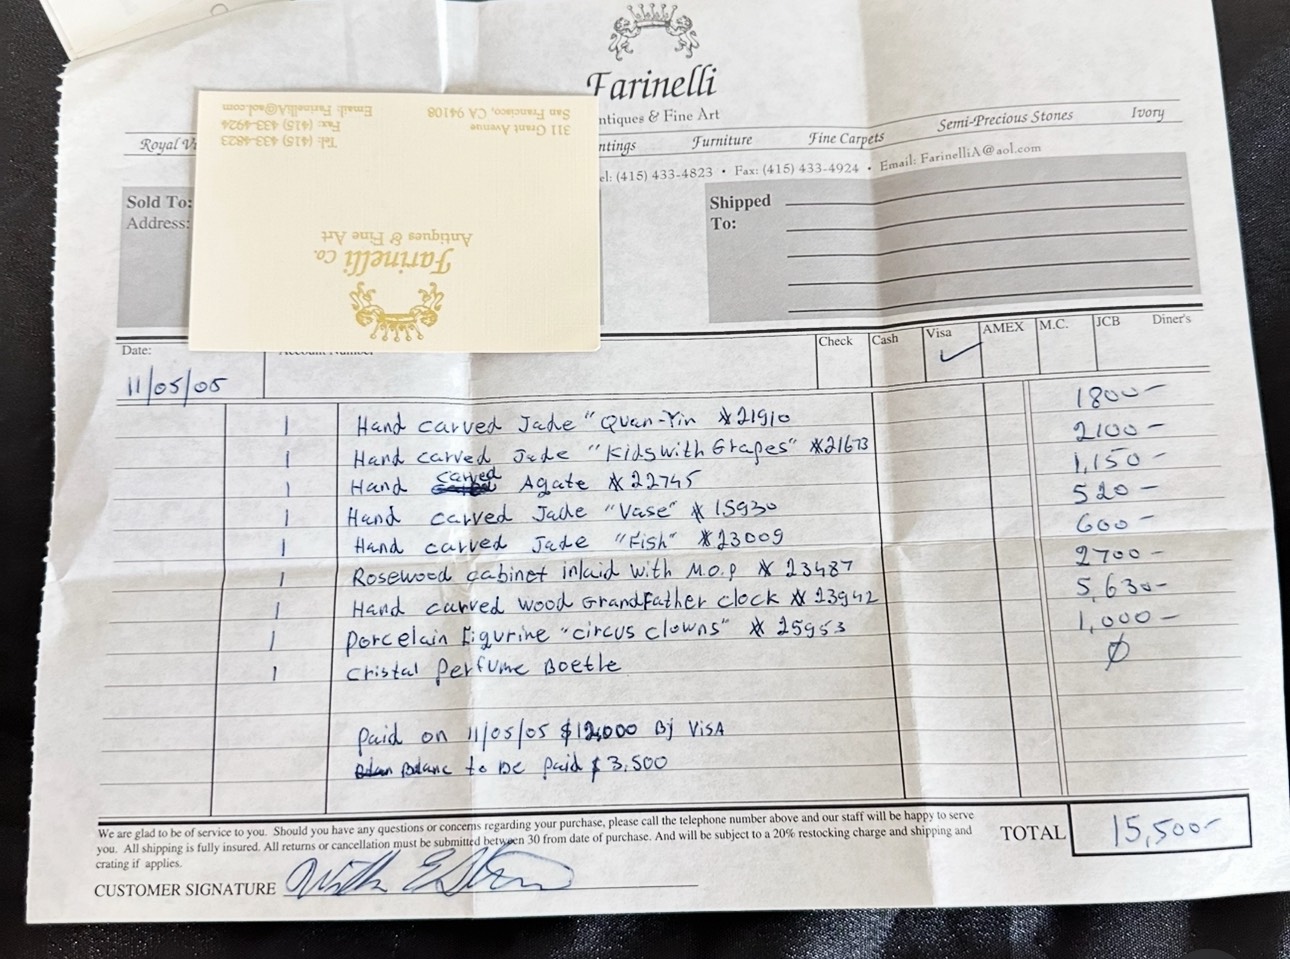 Farinelli
ntiques & Fine Art
Royal Vi
ntings Furniture Fine Carpets Semi-Precious Stones Ivory
el: (415) 433-4823 • Fax: (415) 433-4924 • Email: FarinelliA@aol.com
Farinelli Co.
Antiques & Fine Art
311 Grant Avenue
San Francisco, CA 94108
Tel: (415) 433-4823
Fax: (415) 433-4924
Email: FarinelliA@aol.com
Sold To:
Address:
Shipped
To:
Date: Account Number Check Cash Visa AMEX M.C. JCB Diner's
11/05/05 ✓
1 Hand carved Jade "Quan-Yin #21910 1800-
1 Hand carved Jade "Kids with Grapes" #21673 2100-
1 Hand carved Agate #22745 1,150-
1 Hand carved Jade "Vase" #15930 520-
1 Hand carved Jade "Fish" #23009 600-
1 Rosewood cabinet inlaid with M.O.P # 23487 2700-
1 Hand carved wood GrandFather clock # 23942 5,630-
1 Porcelain Figurine "circus clowns" # 25953 1,000-
1 Cristal Perfume Boetle Ø
Paid on 11/05/05 $12,000 By VISA
Balanc to be paid $ 3,500
We are glad to be of service to you. Should you have any questions or concerns regarding your purchase, please call the telephone number above and our staff will be happy to serve
you. All shipping is fully insured. All returns or cancellation must be submitted between 30 from date of purchase. And will be subject to a 20% restocking charge and shipping and
crating if applies.
TOTAL 15,500-
CUSTOMER SIGNATURE